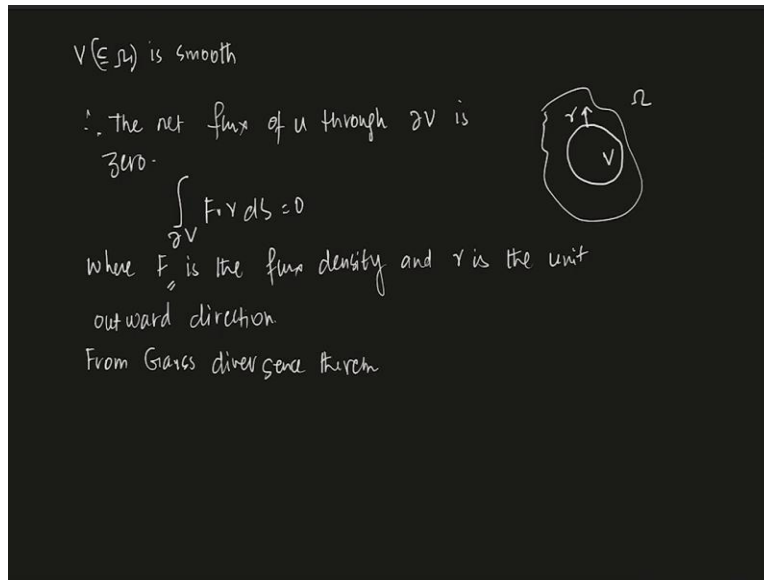 V(⊆Ω) is smooth
∴ The net flux of u through ∂V is
zero.
∫∂V F.γ ds = 0
where F is the flux density and γ is the unit
outward direction.
From Gauss divergence therem
Ω
γ
V